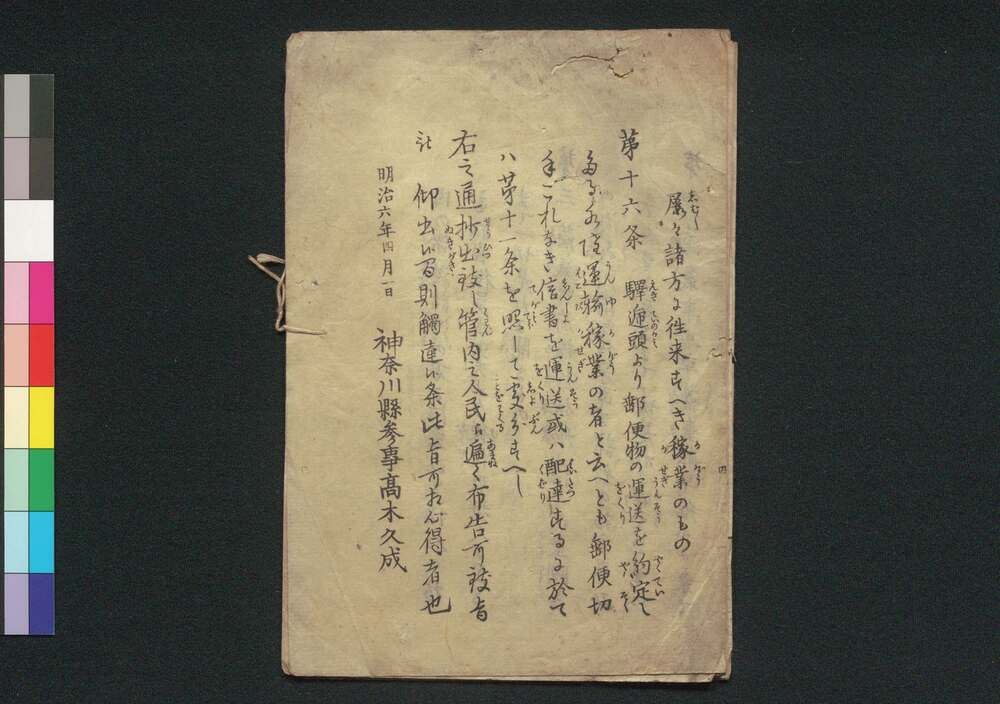 屡々諸方に往来すへき稼業のもの
第十六条　驛逓頭より郵便物の運送を約定し
たる水陸運輸稼業の者と云へとも郵便切
手これなき信書を運送或ハ配達するに於て
ハ第十一条を照して処分すへし
右之通抄出致し管内之人民江遍く布告可致旨
被
仰出候間則觸達候条此旨可相心得者也
明治六年四月一日
神奈川縣参事髙木久成